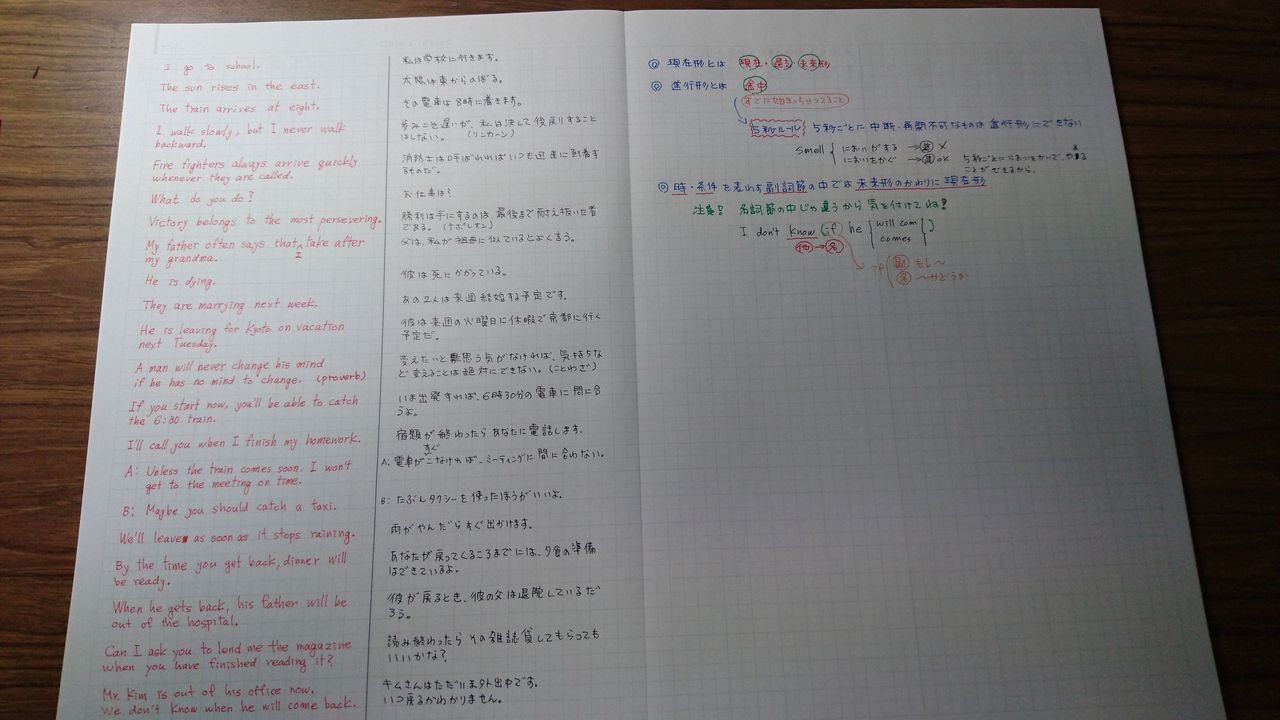 I go to school.
The sun rises in the east.
The train arrives at eight.
I walk slowly, but I never walk
backward.
Fire fighters always arrive quickly
whenever they are called.
What do you do?
Victory belongs to the most persevering.
My father often says that I take after
my grandma.
He is dying.
They are marrying next week.
He is leaving for Kyoto on vacation
next Tuesday.
A man will never change his mind
if he has no mind to change. (proverb)
If you start now, you'll be able to catch
the 6:30 train.
I'll call you when I finish my homework.
A: Unless the train comes soon, I won't
get to the meeting on time.
B: Maybe you should catch a taxi.
We'll leave as soon as it stops raining.
By the time you get back, dinner will
be ready.
When he gets back, his father will be
out of the hospital.
Can I ask you to lend me the magazine
when you have finished reading it?
Mr. Kim is out of his office now.
We don't know when he will come back.
私は学校に行きます。
太陽は東からのぼる。
その電車は8時に着きます。
歩みこそ遅いが、私は決して後戻りすること
はしない。(リンカーン)
消防士は呼ばれればいつも迅速に到着す
るものだ。
お仕事は?
勝利は手にするのは、最後まで耐え抜いた者
である。(ナポレオン)
父は、私が祖母に似ているとよく言う。
彼は死にかかっている。
あの2人は来週結婚する予定です。
彼は来週の火曜日に休暇で京都に行く
予定だ。
変えたいと思う気がなければ、気持ちな
ど変えることは絶対にできない。(ことわざ)
いま出発すれば、6時30分の電車に間に合
うよ。
宿題が終わったらあなたに電話します。
A: 電車がすぐこなければ、ミーティングに間に合わない。
B: たぶんタクシーを使ったほうがいいよ。
雨がやんだらすぐ出かけます。
あなたが戻ってくるころまでには、夕食の準備
はできているよ。
彼が戻るとき、彼の父は退院しているだ
ろう。
読み終わったらその雑誌貸してもらっても
いいかな?
キムさんはただいま外出中です。
いつ戻るかわかりません。
◎ 現在形とは 現在・過去・未来形
◎ 進行形とは 途中
すでに始まっちゃってること
5秒ルール 5秒ごとに中断・再開不可なものは進行形にできない
smell { においがする →進 ×
においをかぐ →進 OK 5秒ごとににおいをかいで、やめる
ことができるから。
◎ 時・条件を表わす副詞節の中では未来形のかわりに現在形
注意! 名詞節の中じゃ違うから気を付けてね!
I don't know (if he { will com
comes })
他→名
if ( 副 もし〜
名 〜かどうか